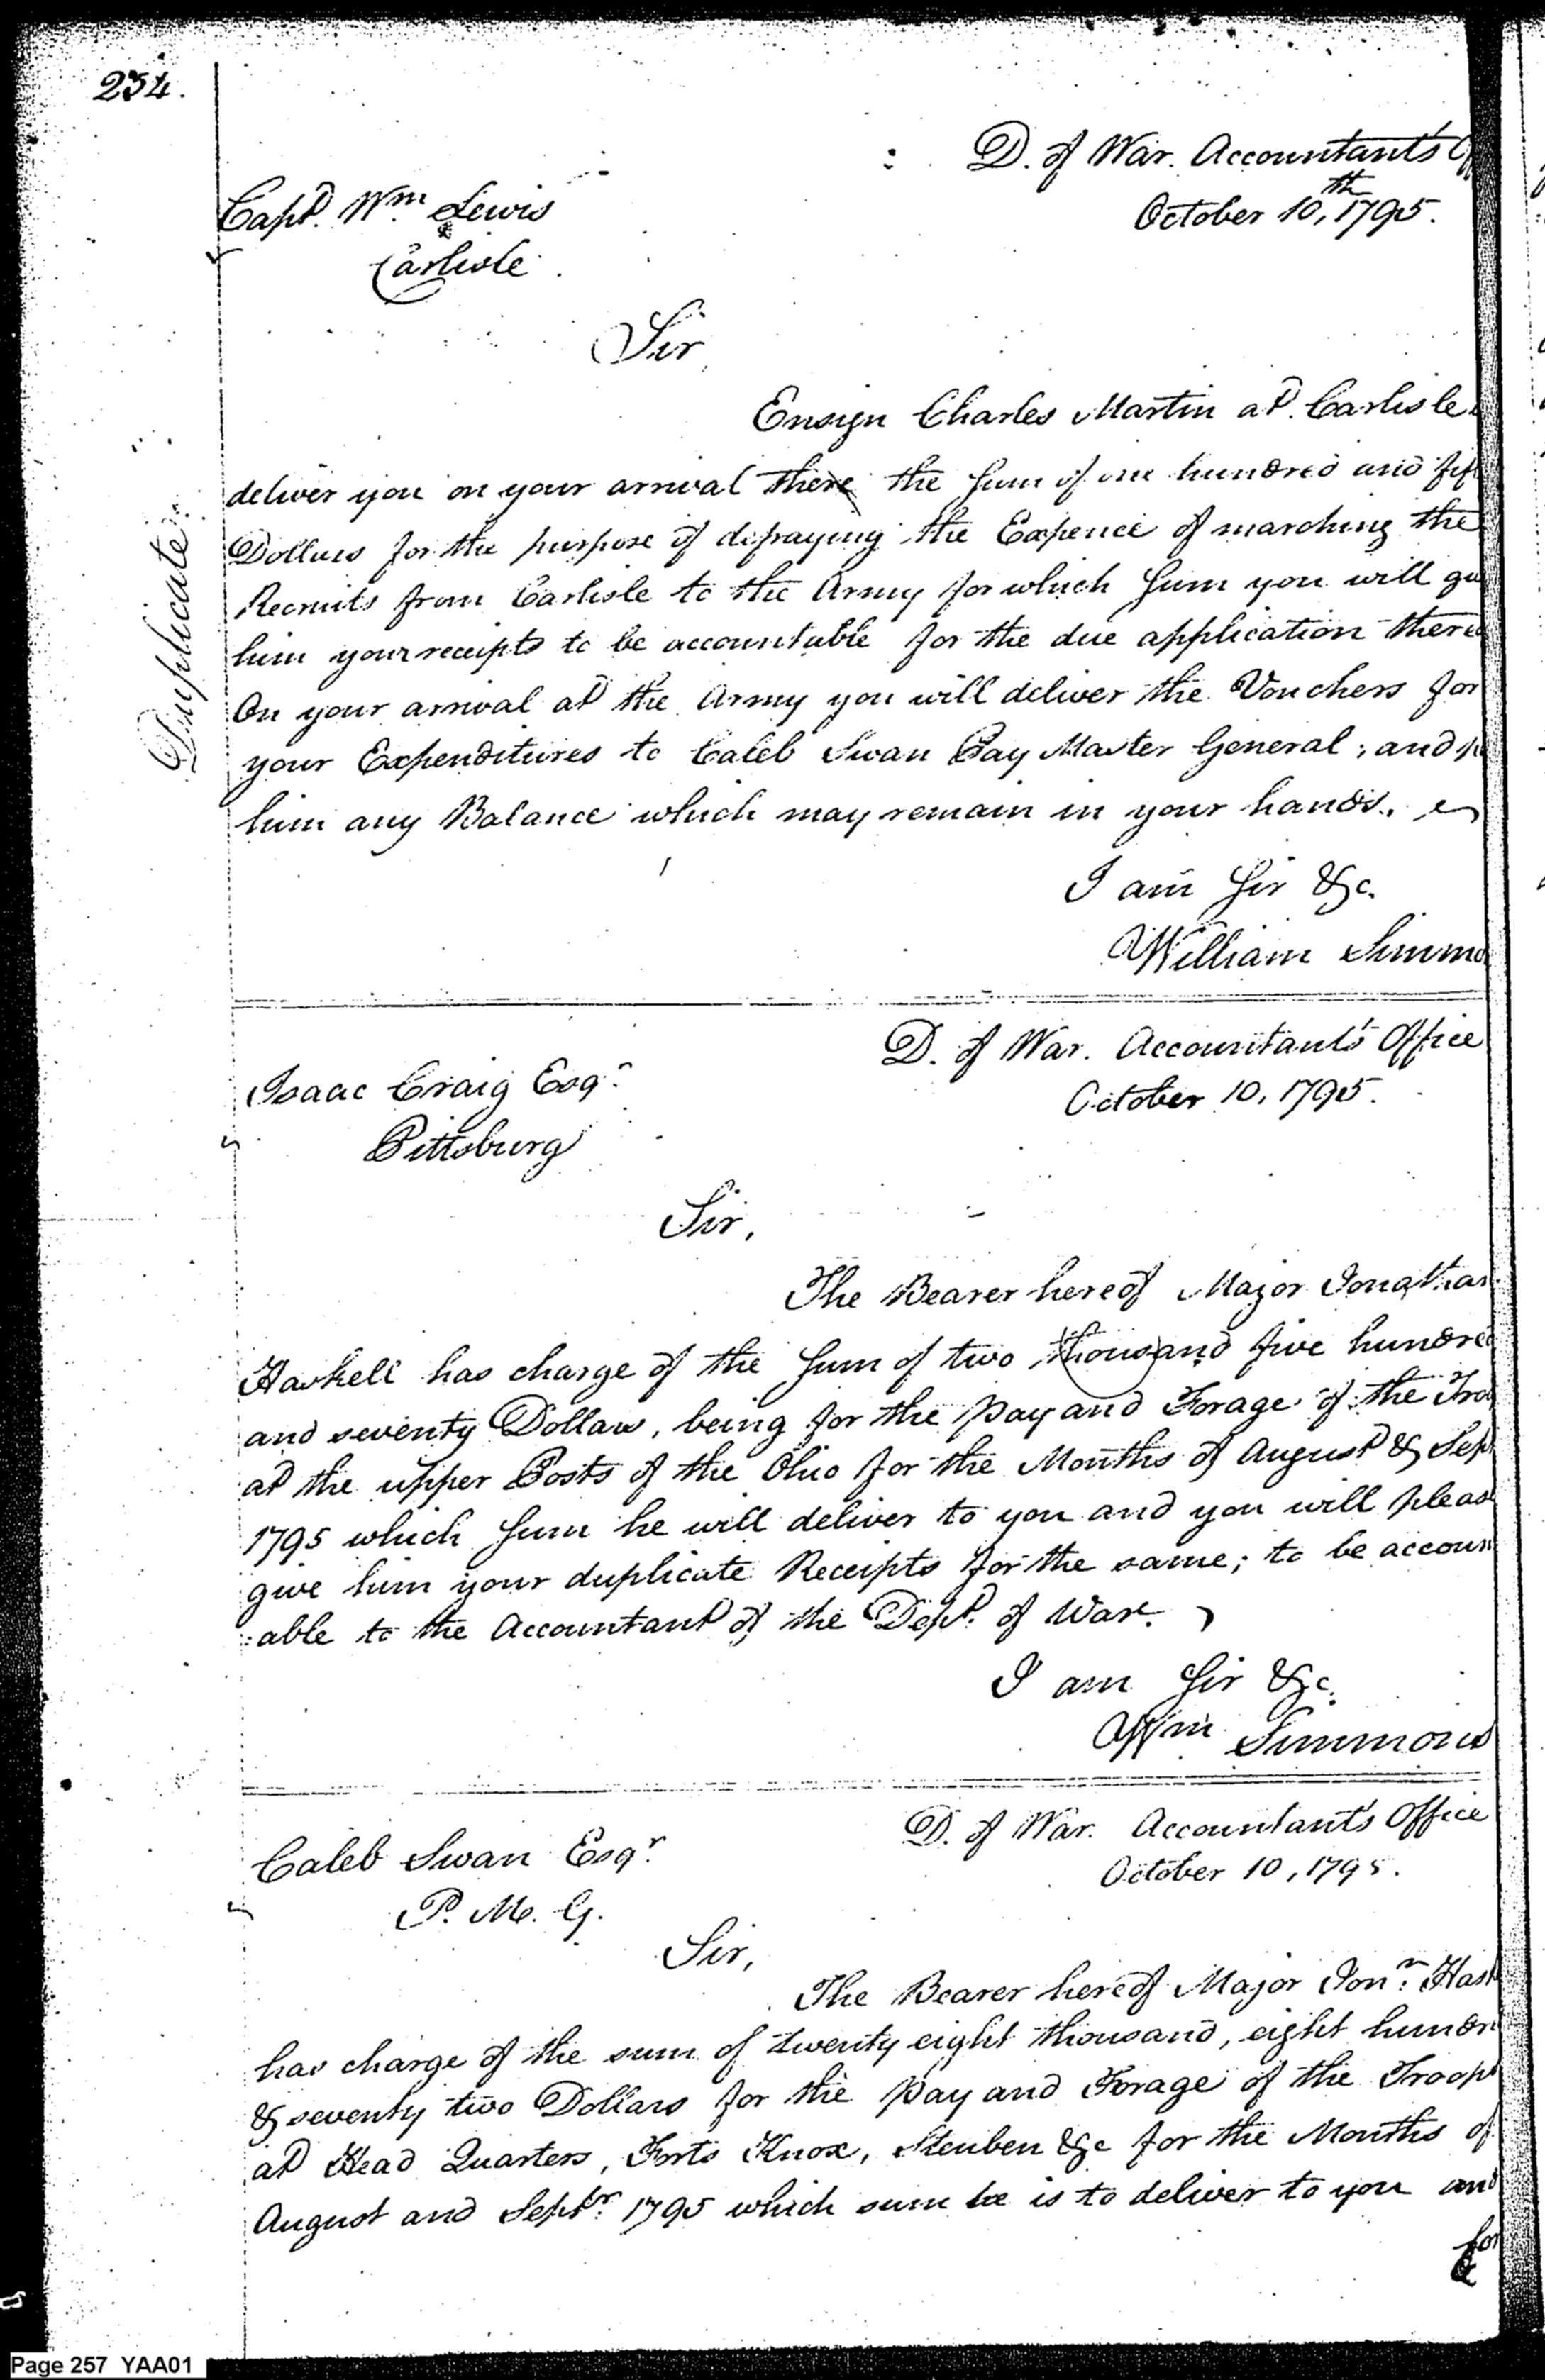 234.
D. of War. Accountant's
October 10th, 1795.
Capt. Wm Lewis
Carlisle
Sir
Duplicate
Ensign Charles Martin at Carlisle
deliver you on your arrival there the sum of one hundred and fif
Dollars for the purpose of defraying the Expence of marching the
Recruits from Carlisle to the Army for which sum you will gi
him your receipts to be accountable for the due application there
On your arrival at the Army you will deliver the Vouchers for
your Expenditures to Caleb Swan Pay Master General, and
him any Balance which may remain in your hands.
I am Sir &c.
William Simmo
D. of War. Accountant's Office
October 10, 1795.
Isaac Craig Esqr
Pittsburg
Sir,
The Bearer hereof Major Jonathan
Haskell has charge of the sum of two thousand five hundred
and seventy Dollars, being for the pay and Forage of the Tro
at the upper Posts of the Ohio for the Months of August & Sep
1795 which sum he will deliver to you and you will pleas
give him your duplicate Receipts for the same; to be accoun
:able to the Accountant of the Dept. of War.
I am Sir &c.
Wm Simmons
D. of War. Accountant's Office
October 10, 1795.
Caleb Swan Esqr.
P. M. G.
Sir,
The Bearer hereof Major Jonn: Hask
has charge of the sum of twenty eight thousand, eight hundr
& seventy two Dollars for the pay and Forage of the Troops
at Head Quarters, Forts Knox, Steuben &c for the Months of
August and Septbr: 1795 which sum he is to deliver to you and
for
Page 257 YAA01